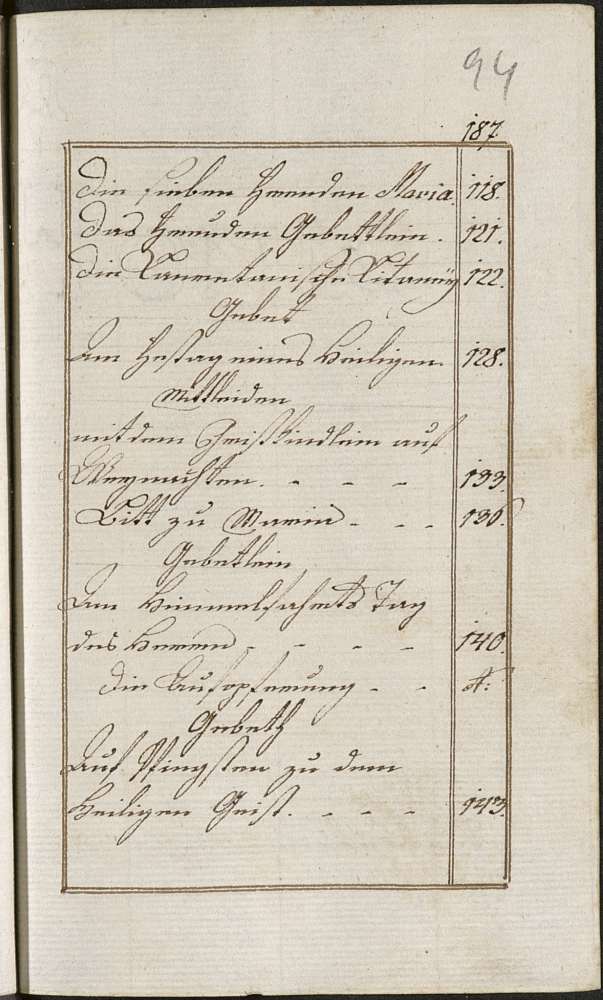 94
187
Die sieben Freuden Maria. 118.
Das Freuden Gebettlein. 121.
Die Lauretanische Litaney 122.
Gebet
Am Festag eines Heiligen. 128.
Mittleiden
mit dem Jesukindlein auf
Weynachten. - - - 133.
Bitt zu Maria - - - 136.
Gebetlein
Am Himmelfahrts Tag
des Herrn - - - - 140.
Die Aufopferung - -
Gebeth
Auf Pfingsten zu dem
Heiligen Geist. - - - 143.